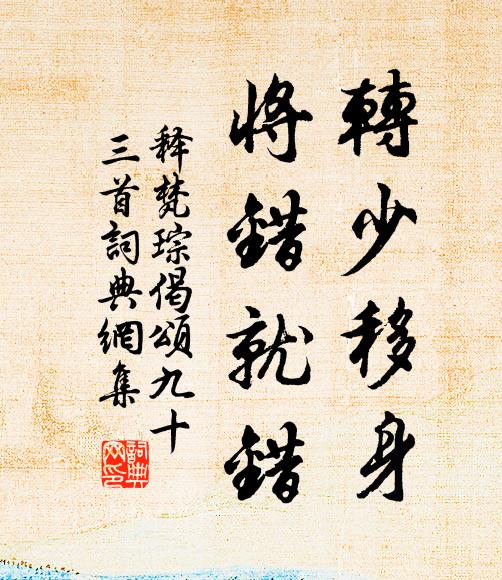 轉少移身
將錯就錯
释梵琮偈頌九十
三首詞典網集
詞典
网印